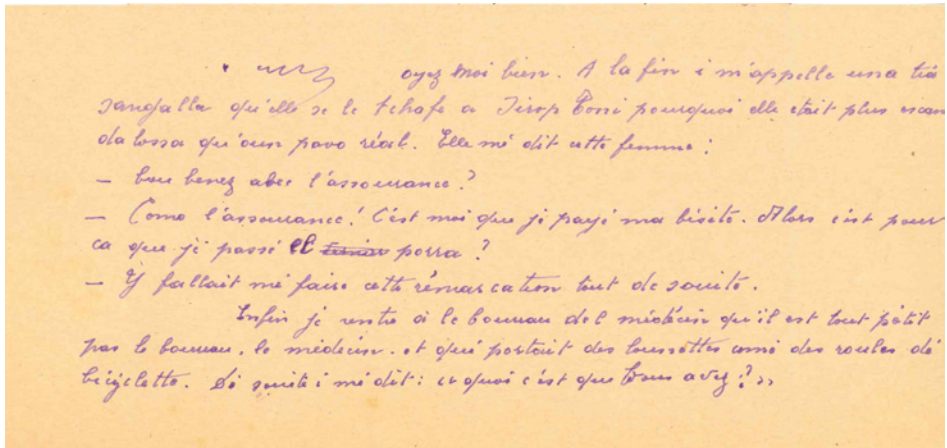 oyez moi bien. A la fin i m'appelle una tia
sangalla qu'elle se le tchafe a Jirop Tossi pourquoi elle était plus escan
dalossa qu'oun pavo réal. Elle mé dit cette femme :
— bou benez abec l'assourance ?
— Como l'assourance ! C'est moi que jé payé ma bisite. Alors c'est pour
ca que jé passé el porra ?
— Y fallait mé faire cette rémarcation tout de souite.
Enfin jé rentre à le boureau del médécin qu'il est tout pétit
pas le boureau, le médecin. et qué portait des lounettes comé des roules dé
bicyclette. Dé souite i mé dit : ce quoi c'est que bous avez ? »